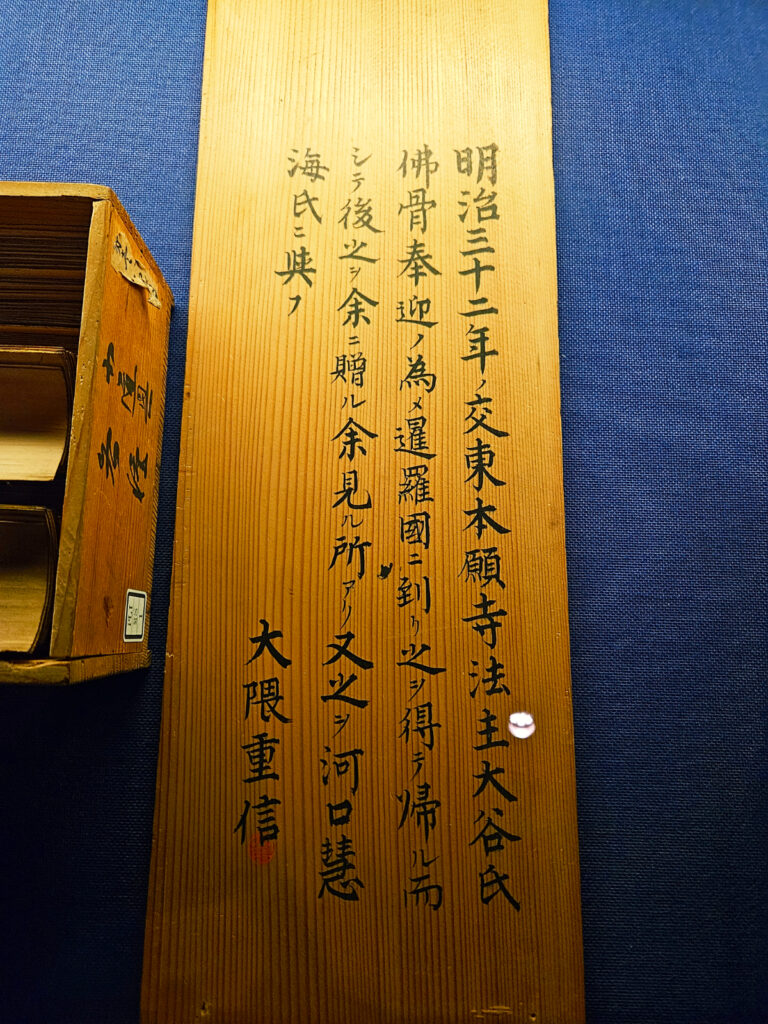 明治三十二年ノ交東本願寺法主大谷氏
佛骨奉迎ノ為メ暹羅國ニ到リ之ヲ得テ帰ル而
シテ後之ヲ余ニ贈ル余見ル所アリ又之ヲ河口慧
海氏ニ與フ
大隈重信